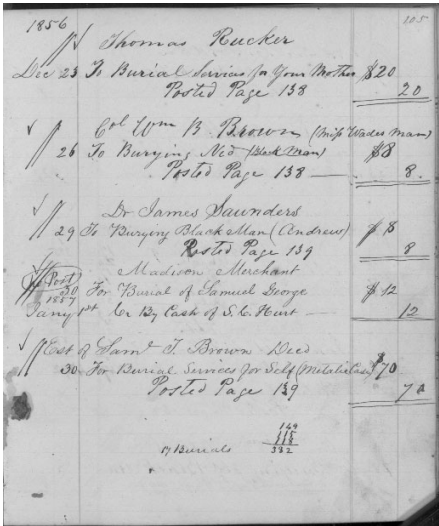 1856
105
Thomas Rucker
Dec 23 To Burial Services for Your Mother $20
Posted Page 138 20
Col Wm B Brown (Miss Wades Man)
26 To Burying Ned (Black Man) $8
Posted Page 138 8
Dr James Saunders
29 To Burying Black Man (Andrew) $8
Posted Page 139 8
Madison Merchant
Post 30 For Burial of Samuel George $12
1857
Jany 1st Cr By Cash of S. C. Hurt 12
Est of Saml T. Brown Decd
30 For Burial Services for Self (Metalic Case) $70
Posted Page 139 70
149
118
17 Burials 332